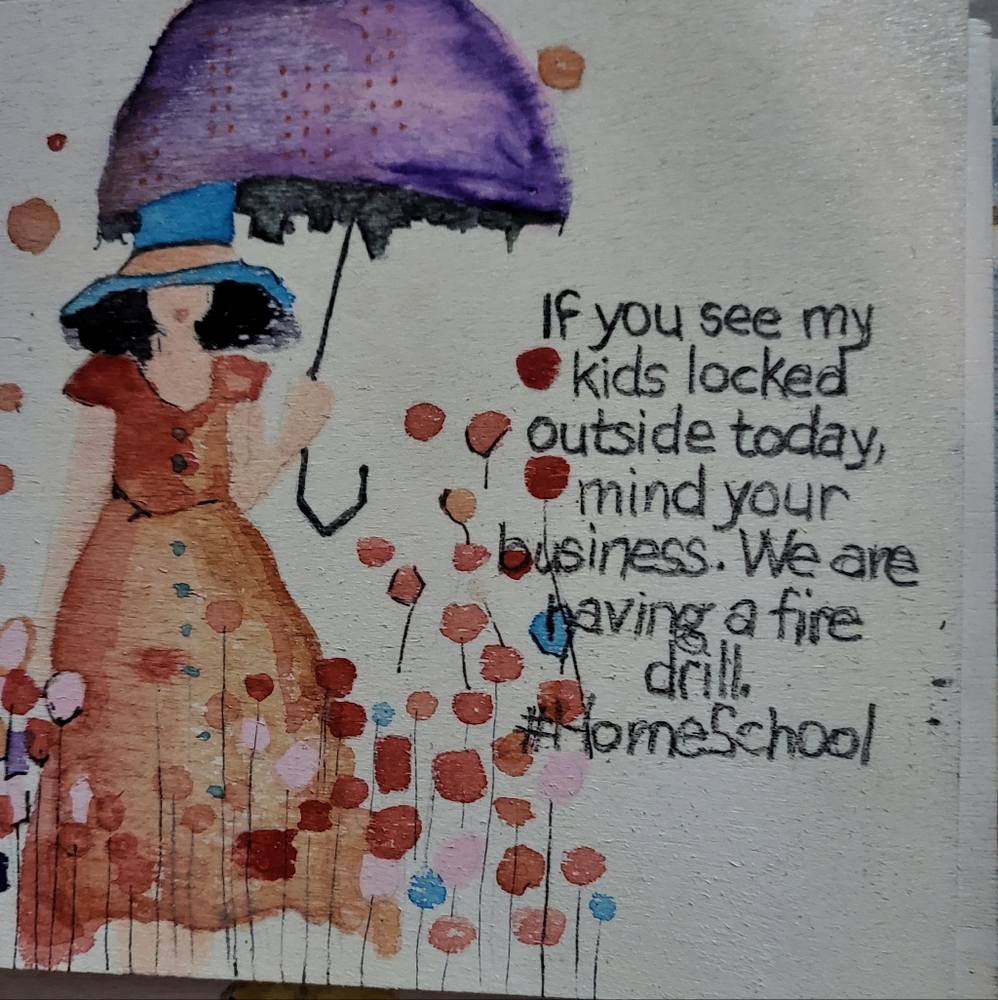 If you see my
kids locked
outside today,
mind your
business. We are
having a fire
drill.
#HomeSchool